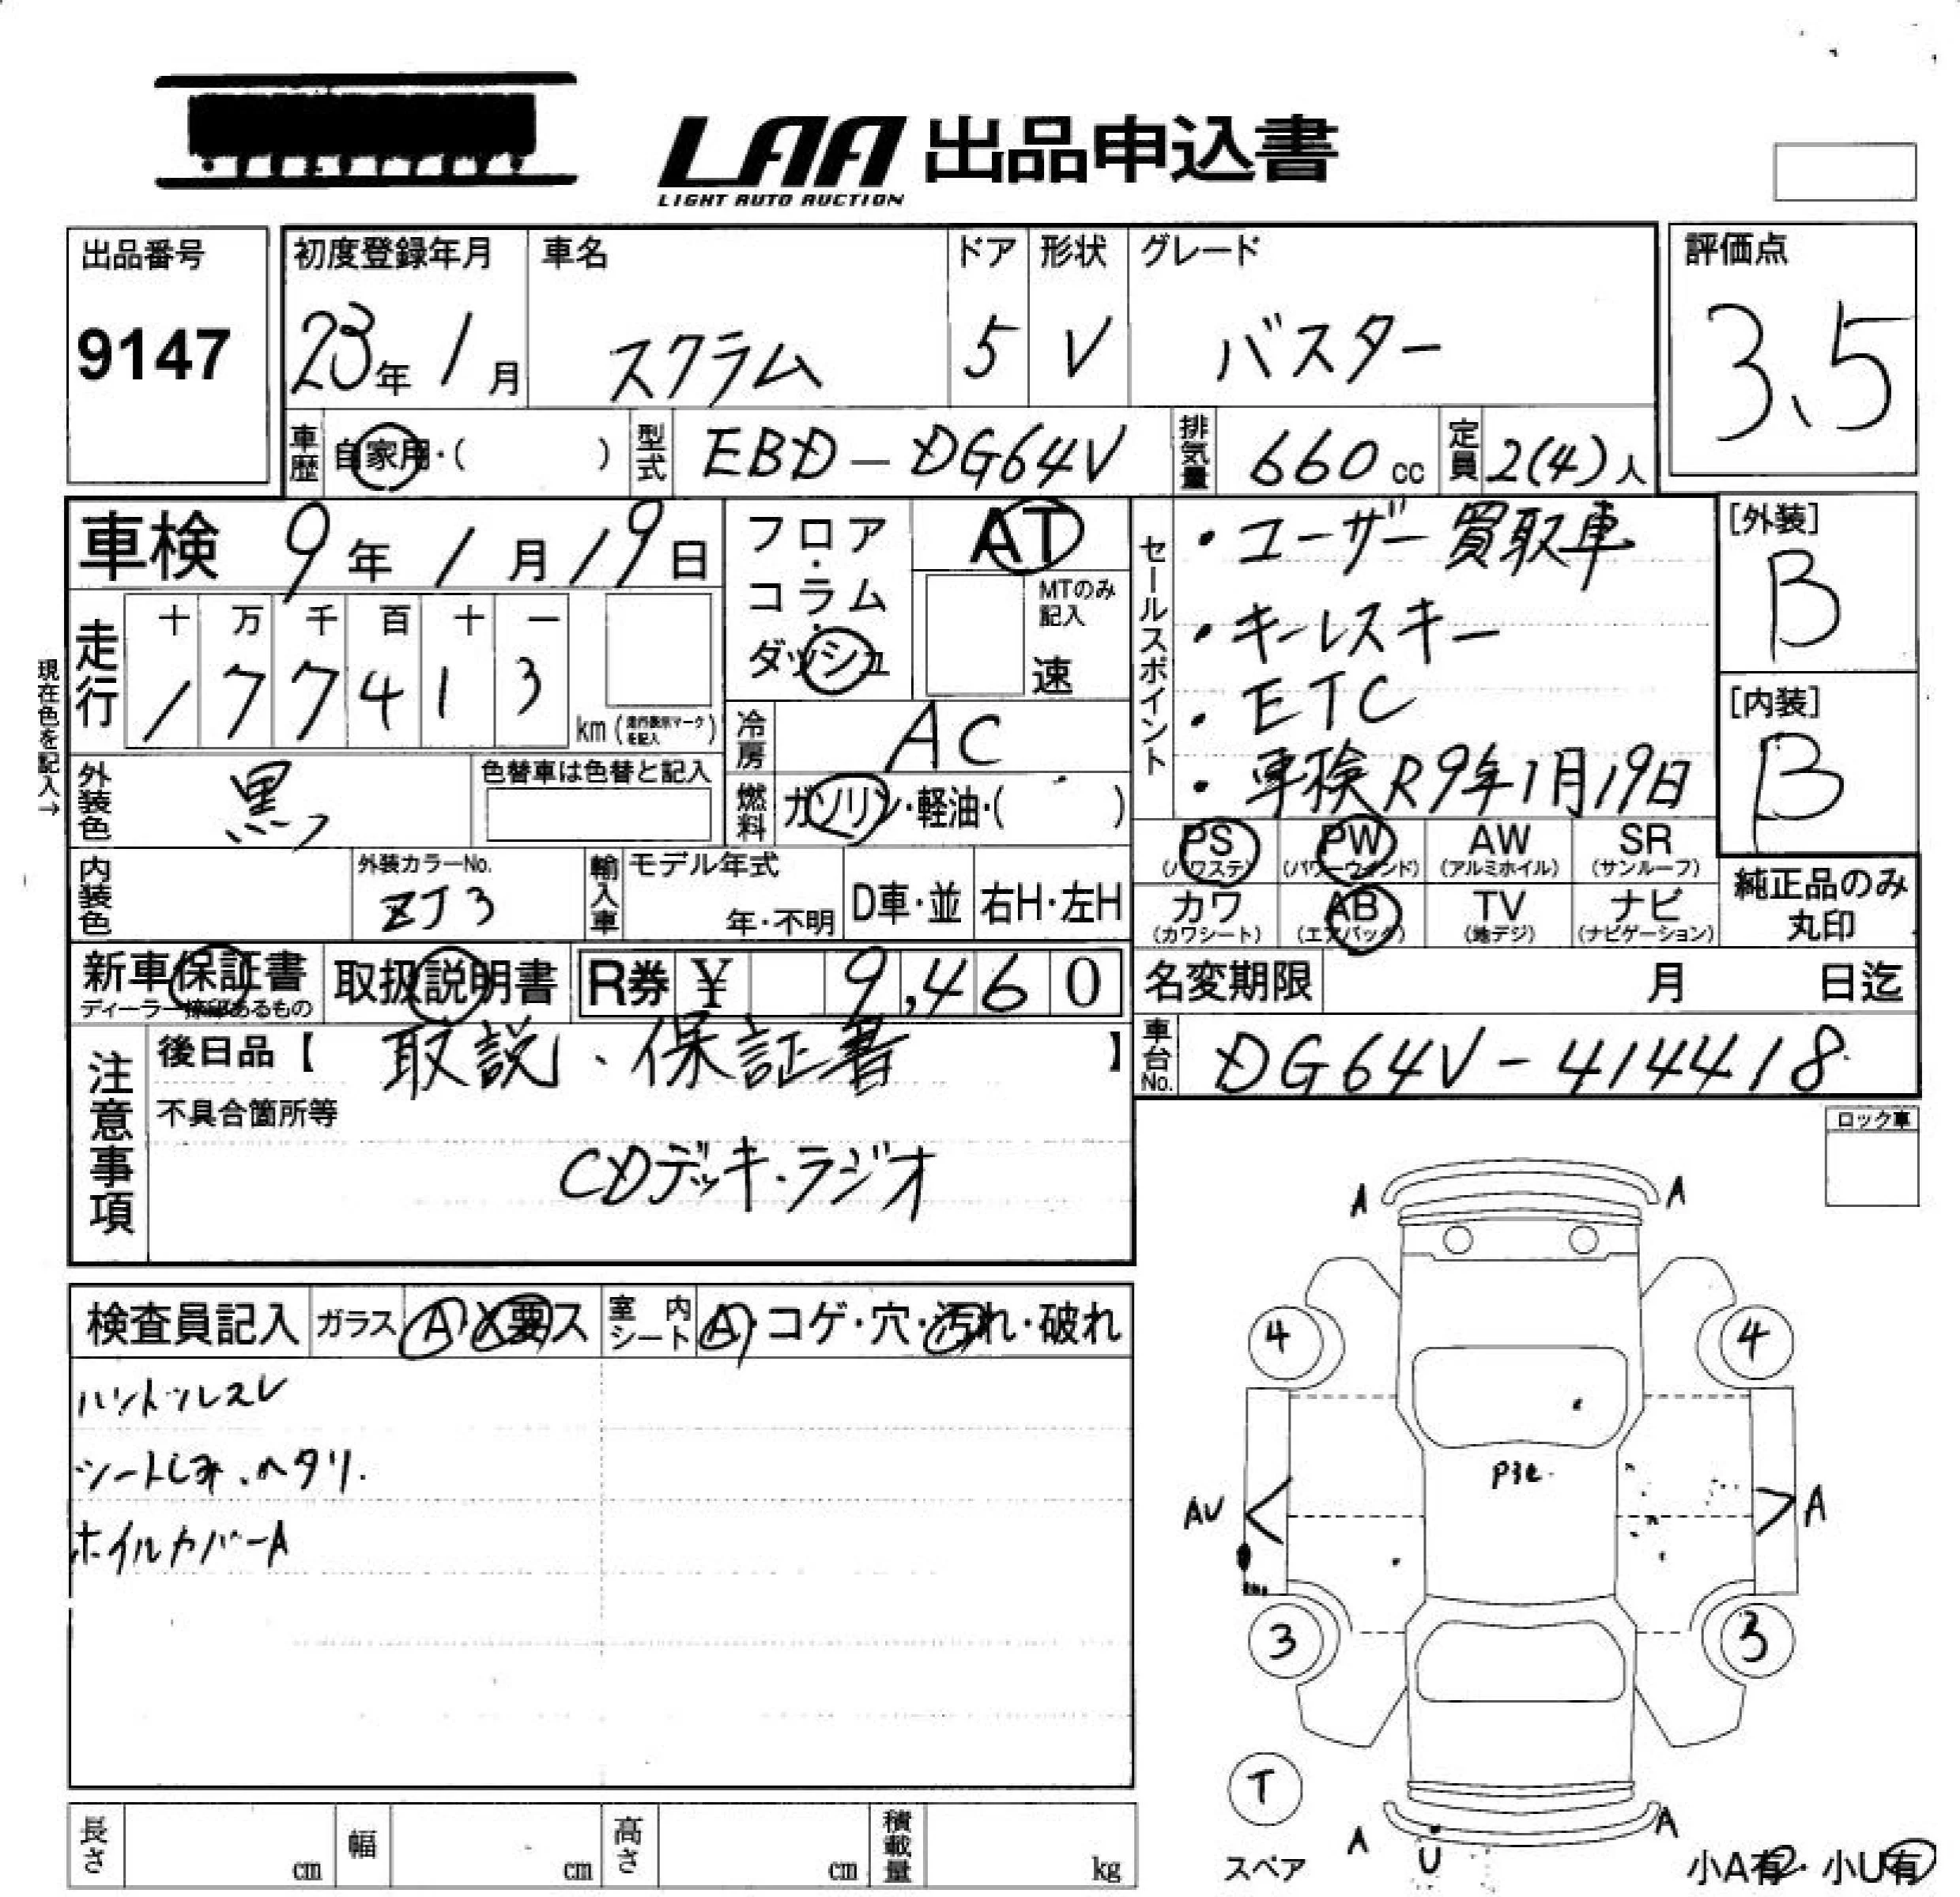 LAA 出品申込書
LIGHT AUTO AUCTION
出品番号
9147
初度登録年月
23年 1月
車名
スクラム
ドア
5
形状
V
グレード
バスター
評価点
3.5
車歴
自家用・( )
型式
EBD-DG64V
排気量
660cc
定員
2(4)人
車検 9年 1月 19日
フロア・コラム・ダッシュ
AT
MTのみ記入
速
現在色を記入→
走行
十 万 千 百 十 一
1 7 7 4 1 3
km(走行表示マークを記入)
冷房
AC
外装色
黒
色替車は色替と記入
燃料
ガソリン・軽油・( )
内装色
外装カラーNo.
ZJ3
輸入車
モデル年式
年・不明
D車・並
右H・左H
セールスポイント
・ユーザー買取車
・キーレスキー
・ETC
・車検R9年1月19日
[外装]
B
[内装]
B
PS (パワステ)
PW (パワーウィンド)
AW (アルミホイル)
SR (サンルーフ)
カワ (カワシート)
AB (エアバック)
TV (地デジ)
ナビ (ナビゲーション)
純正品のみ丸印
新車保証書
取扱説明書
R券 ¥ 9,460
名変期限 月 日迄
車台No.
DG64V-414418
注意事項
後日品【 取説、保証書 】
不具合箇所等
CDデッキ・ラジオ
ロック車
検査員記入
ガラス A・X要ス
室内シート A・コゲ・穴・汚れ・破れ
ハンドルスレ
シートしみ、ヘタリ.
ホイルカバーA
A A
4 4
AV A
3 3
T
スペア
A U A
小A有・小U有
長さ cm
幅 cm
高さ cm
積載量 kg